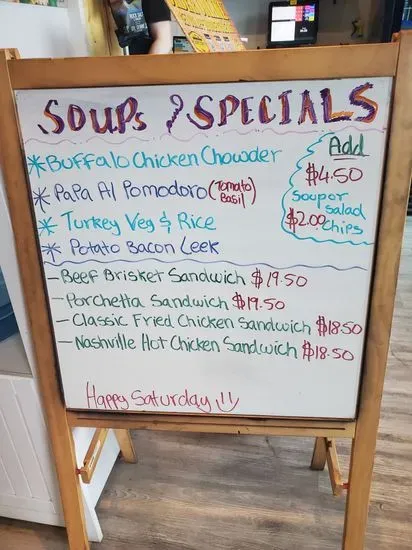 SOUPS & SPECIALS
* Buffalo Chicken Chowder
* PaPa Al Pomodoro (Tomato Basil)
* Turkey Veg & Rice
* Potato Bacon Leek
Add
$4.50
soup or salad
$2.00 chips
- Beef Brisket Sandwich $19.50
- Porchetta Sandwich $19.50
- Classic Fried Chicken Sandwich $18.50
- Nashville Hot Chicken Sandwich $18.50
Happy Saturday !!